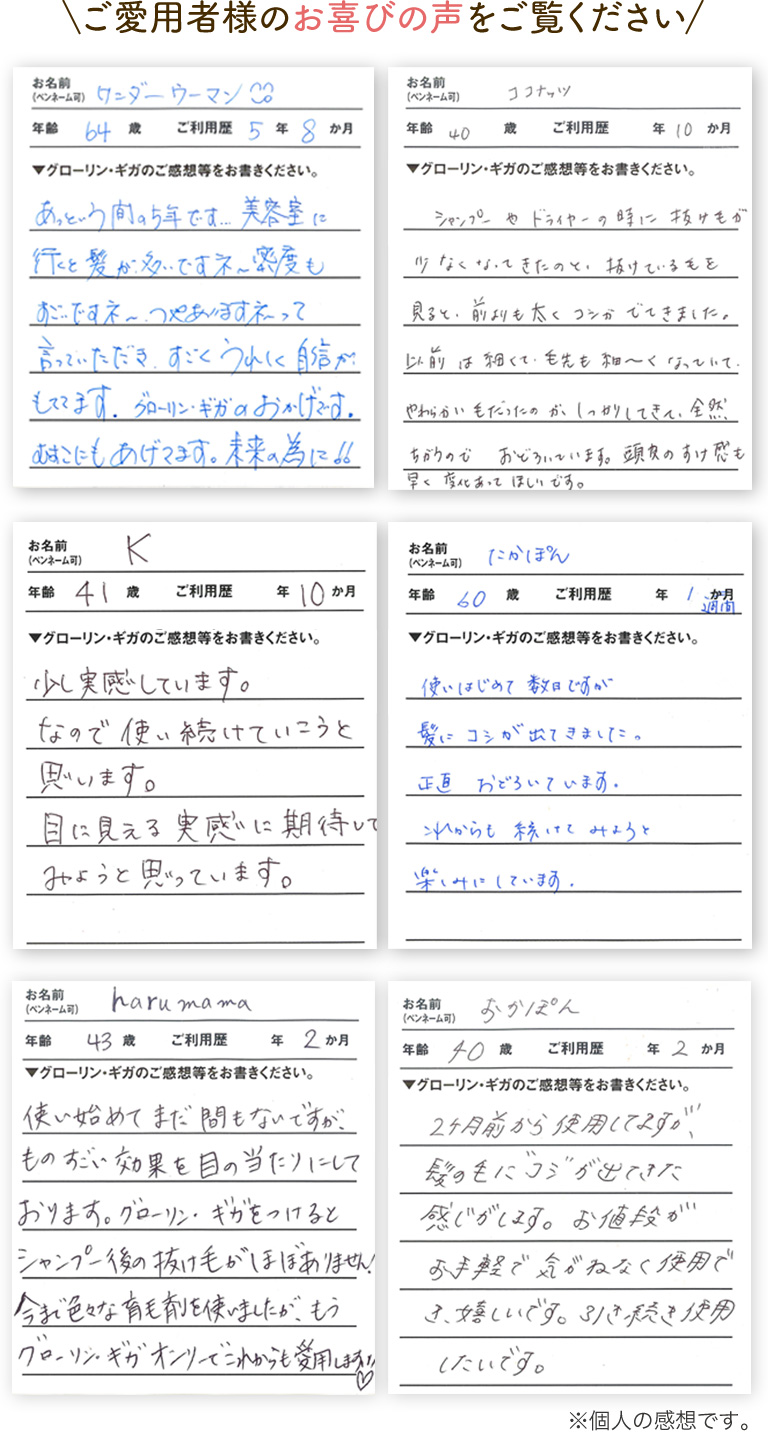 \ご愛用者様のお喜びの声をご覧ください/
お名前
(ペンネーム可) ワンダーウーマン
年齢 64 歳 ご利用歴 5 年 8 か月
▼グローリン・ギガのご感想等をお書きください。
あっという間の5年です…美容室に
行くと髪が多いですネ〜密度も
すごいですネ〜、つやありますネ〜って
言っていただき、すごくうれしく自信が
もててます。グローリン・ギガのおかげです。
むすこにもあげてます。未来の為に!!
お名前
(ペンネーム可) ココナッツ
年齢 40 歳 ご利用歴 年 10 か月
▼グローリン・ギガのご感想等をお書きください。
シャンプーやドライヤーの時に抜け毛が
少なくなってきたのと、抜けている毛を
見ると、前よりも太くコシがでてきました。
以前は細くて、毛先も細〜くなっていて、
やわらかい毛だったのが、しっかりしてきて、全然
ちがうのでおどろいています。頭皮のすけ感も
早く変化あってほしいです。
お名前
(ペンネーム可) K
年齢 41 歳 ご利用歴 年 10 か月
▼グローリン・ギガのご感想等をお書きください。
少し実感しています。
なので使い続けていこうと
思います。
目に見える実感に期待して
みようと思っています。
お名前
(ペンネーム可) たかぽん
年齢 60 歳 ご利用歴 年 1 か月
週間
▼グローリン・ギガのご感想等をお書きください。
使いはじめて数日ですが
髪にコシが出てきました。
正直おどろいています。
これからも続けてみようと
楽しみにしています。
お名前
(ペンネーム可) harumama
年齢 43 歳 ご利用歴 年 2 か月
▼グローリン・ギガのご感想等をお書きください。
使い始めてまだ間もないですが、
ものすごい効果を目の当たりにして
おります。グローリン・ギガをつけると
シャンプー後の抜け毛がほぼありません!
今まで色々な育毛剤を使いましたが、もう
グローリン・ギガオンリーでこれからも愛用します!!♡
お名前
(ペンネーム可) おかぽん
年齢 40 歳 ご利用歴 年 2 か月
▼グローリン・ギガのご感想等をお書きください。
2ヶ月前から使用してますが、
髪の毛に"コシ"が出てきた
感じがします。お値段が
お手軽で気がねなく使用で
き、嬉しいです。引き続き使用
したいです。
※個人の感想です。